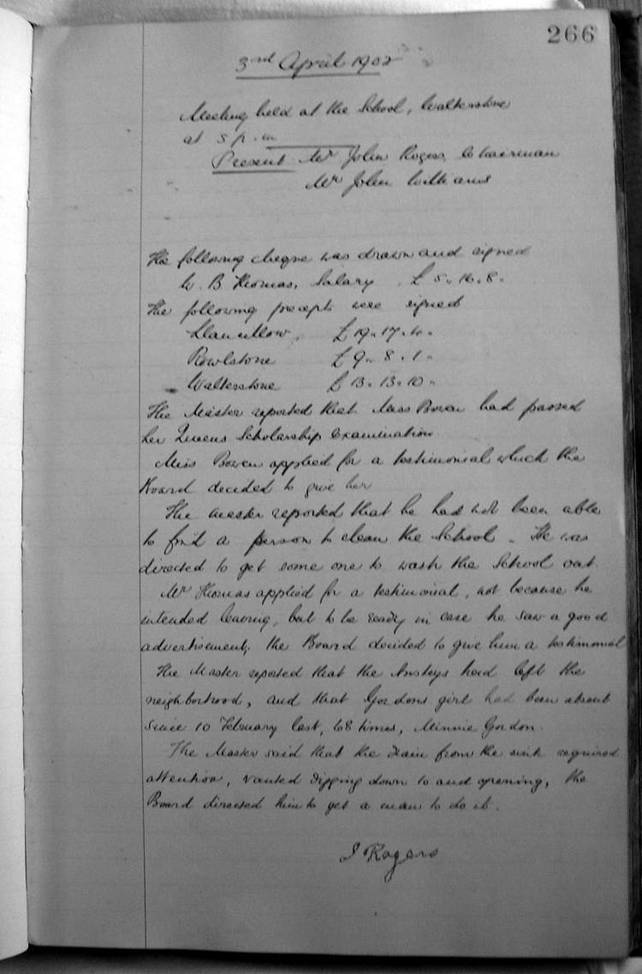 266
3rd April 1902
Meeting held at the School, Walterstone
at 5 p.m
Present Mr John Rogers, Chairman
Mr John Williams
The following cheque was drawn and signed
W. B. Thomas, Salary £5.16.8.
The following precepts were signed
Llancillow, £19.17.
Rowlstone £9.8.1.
Walterstone £13.13.10.
The Master reported that Miss Bowen had passed
her Queens Scholarship Examination.
Miss Bowen applied for a testimonial which the
Board decided to give her
The master reported that he had not been able
to find a person to clean the School. He was
directed to get some one to wash the School out.
Mr Thomas applied for a testimonial, not because he
intended leaving, but to be ready in case he saw a good
advertisement, the Board decided to give him a testimonial
The Master reported that the Ansteys had left the
neighborhood, and that Gordons girl had been absent
since 10 February last, 68 times, Minnie Gordon.
The Master said that the drain from the sink required
attention, wanted digging down to and opening, the
Board directed him to get a man to do it.
J Rogers